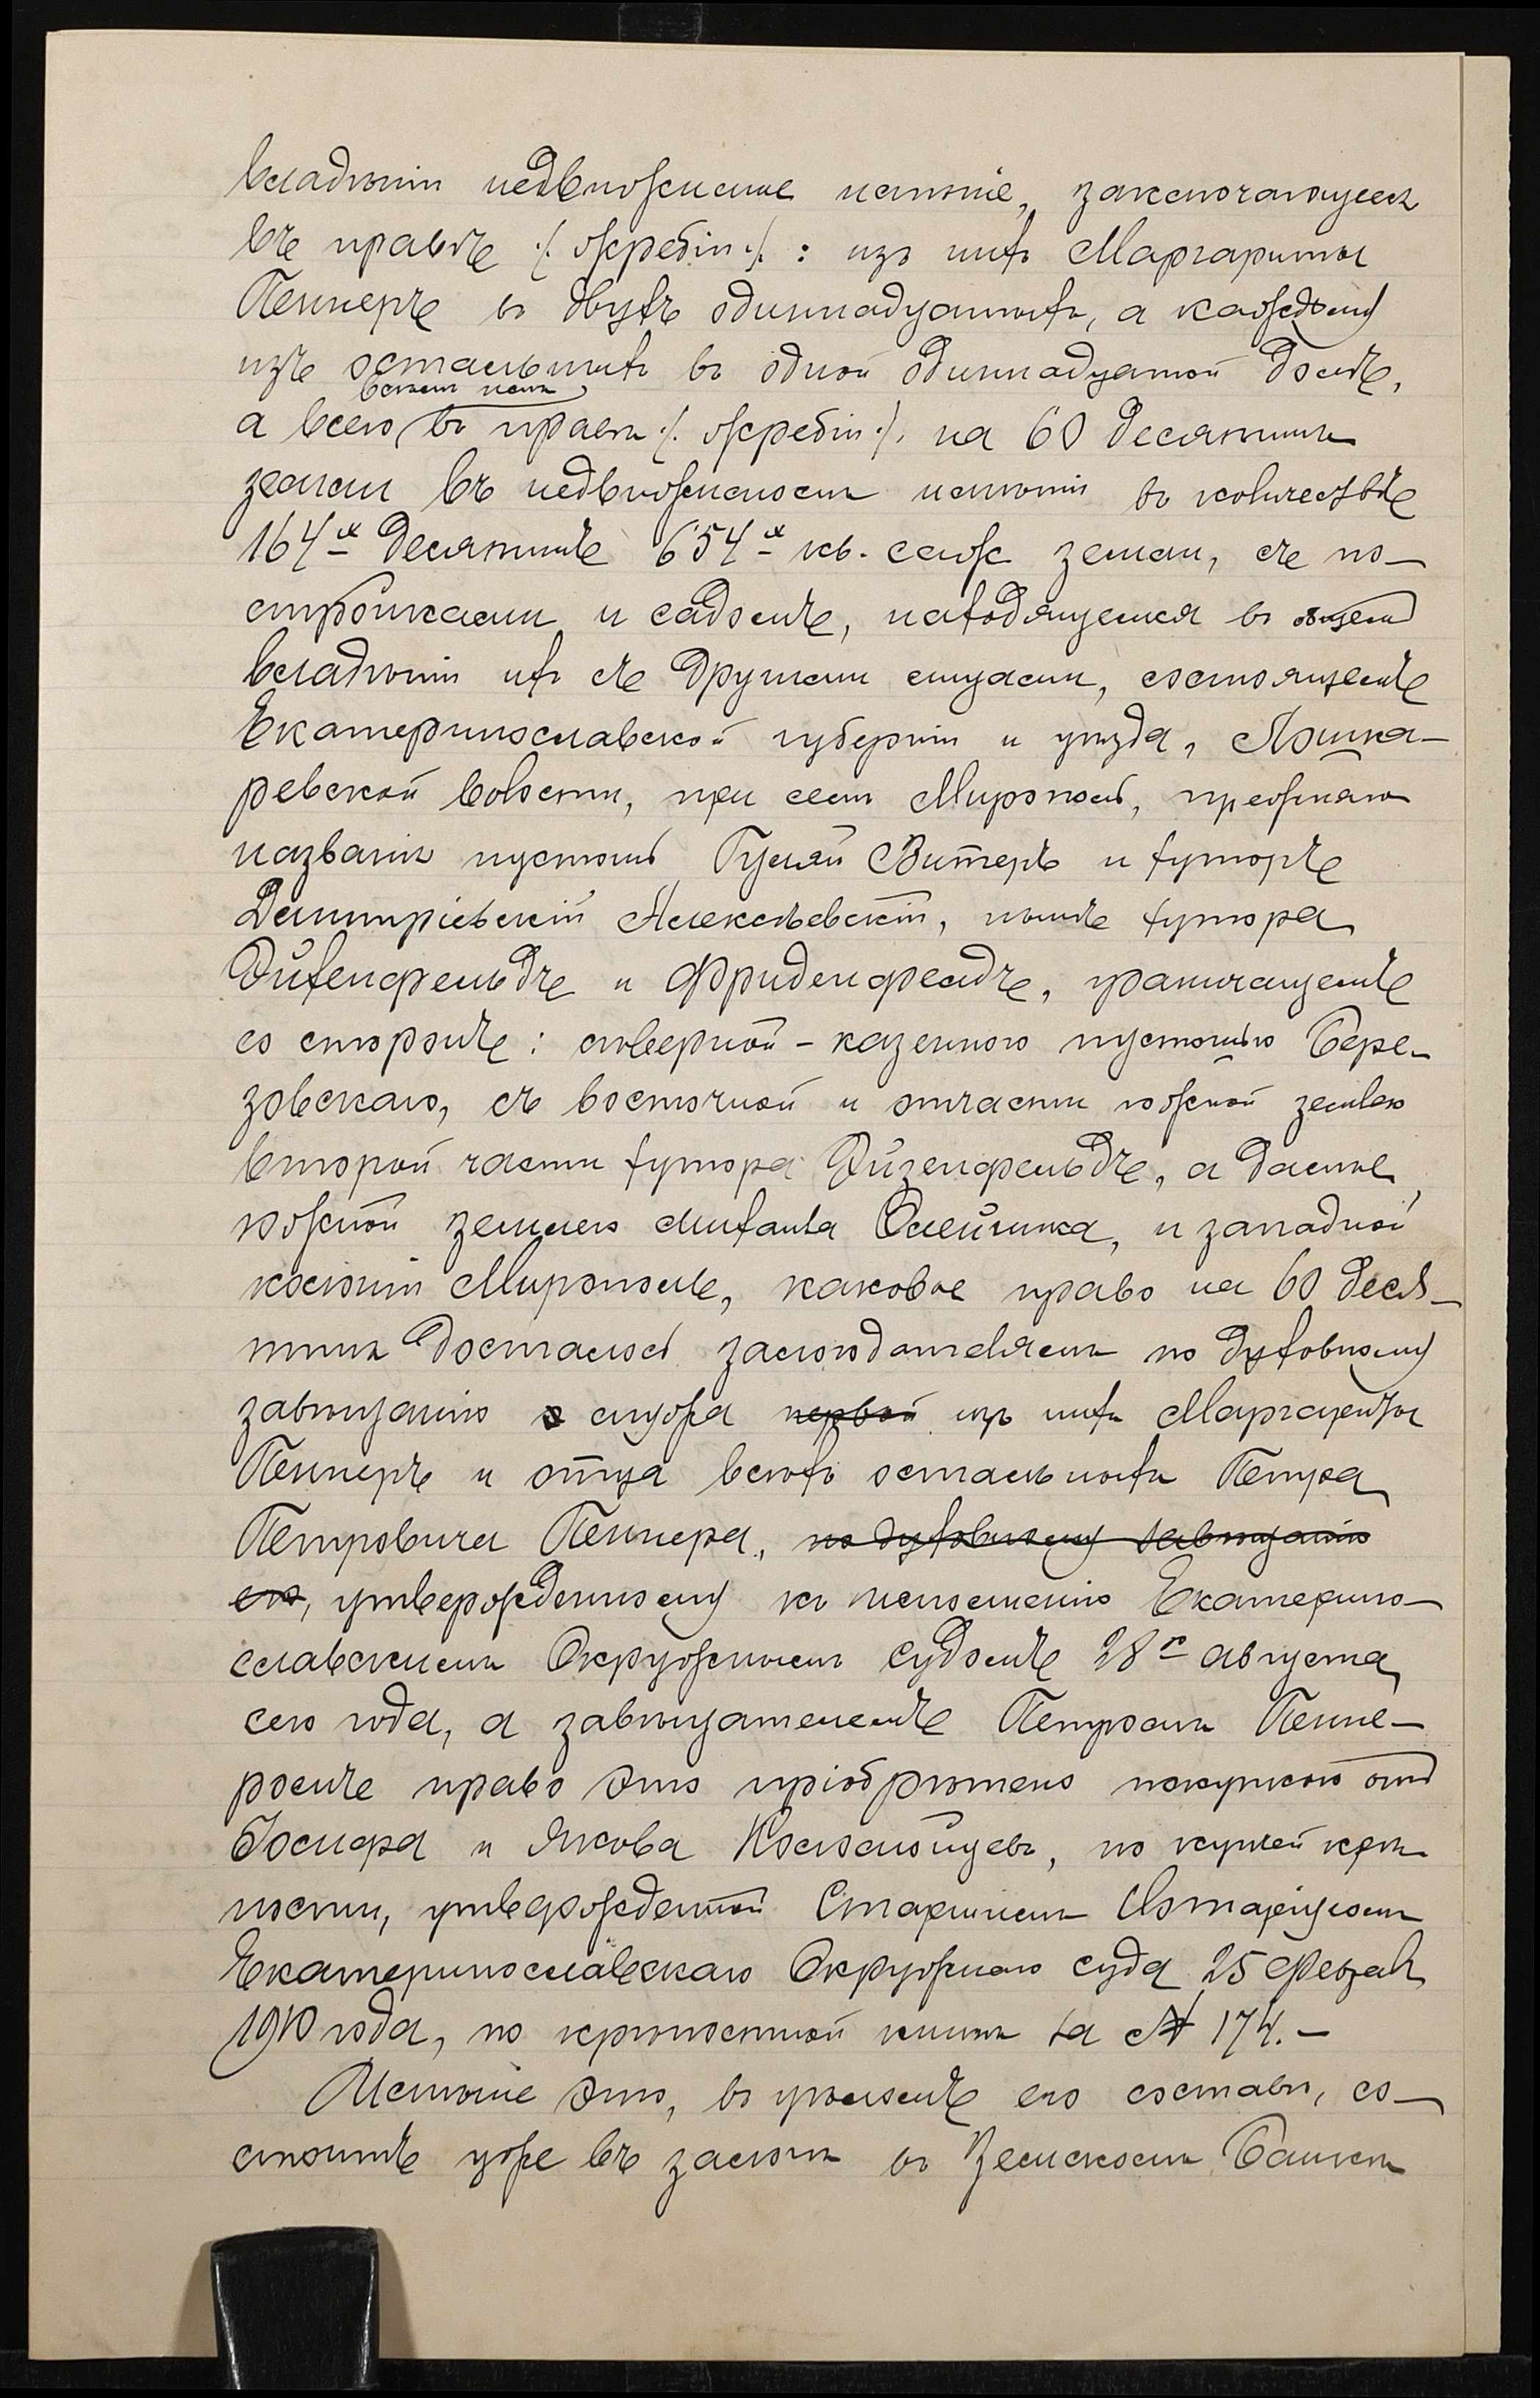 владѣніи недвижимое имѣніе, заключающееся
въ правѣ ./. жребіи ./. : изъ нихъ Маргариты
Пеннеръ въ двухъ одиннадцатыхъ, а каждому
изъ остальныхъ въ одной одиннадцатой долѣ,
всѣмъ имъ
а всего въ правѣ ./. жребіи ./. на 60 десятинъ
земли въ недвижимомъ имѣніи въ количествѣ
164х десятинъ 654х кв. саж земли, съ по-
стройками и садомъ, находящемся въ общемъ
владѣніи ихъ съ другими лицами, состоящемъ
Екатеринославской губерніи и уѣзда, Лошка-
ревской волости, при селѣ Мирополь, прежняго
названія пустошь Гуляй Витеръ и хуторъ
Дмитріевскій Алексѣевскій, нынѣ хутора
Эйхенфельдъ и Фриденфельдъ, граничащемъ
со сторонъ: сѣверной - казенною пустошью Бере-
зовскаго, съ восточной и отчасти южной землею
второй части хутора Эйзенфельдъ, а далѣе
южной землею Михаила Олейника, и западной
колоніи Мирополь, каковое право на 60 деся-
тинъ досталось залогодателямъ по духовному
завѣщанію супруга первой изъ нихъ Маргариты
Пеннеръ и отца всѣхъ остальныхъ Петра
Петровича Пеннера, по духовному завѣщанію
его, утвержденному къ исполненію Екатерино-
славскимъ Окружнымъ Судомъ 28го августа
сего года, а завѣщателемъ Петромъ Пенне-
ромъ право это пріобрѣтено покупкою отъ
Госифа и Якова Коломойцевъ, по купчей крѣ-
пости, утвержденной Старшимъ Нотаріусомъ
Екатеринославскаго Окружнаго суда 25 февраля
1910 года, по крѣпостной книгѣ за № 174. -
Имѣніе это, въ цѣломъ его составѣ, со-
стоитъ уже въ залогѣ въ Земскомъ Банкѣ